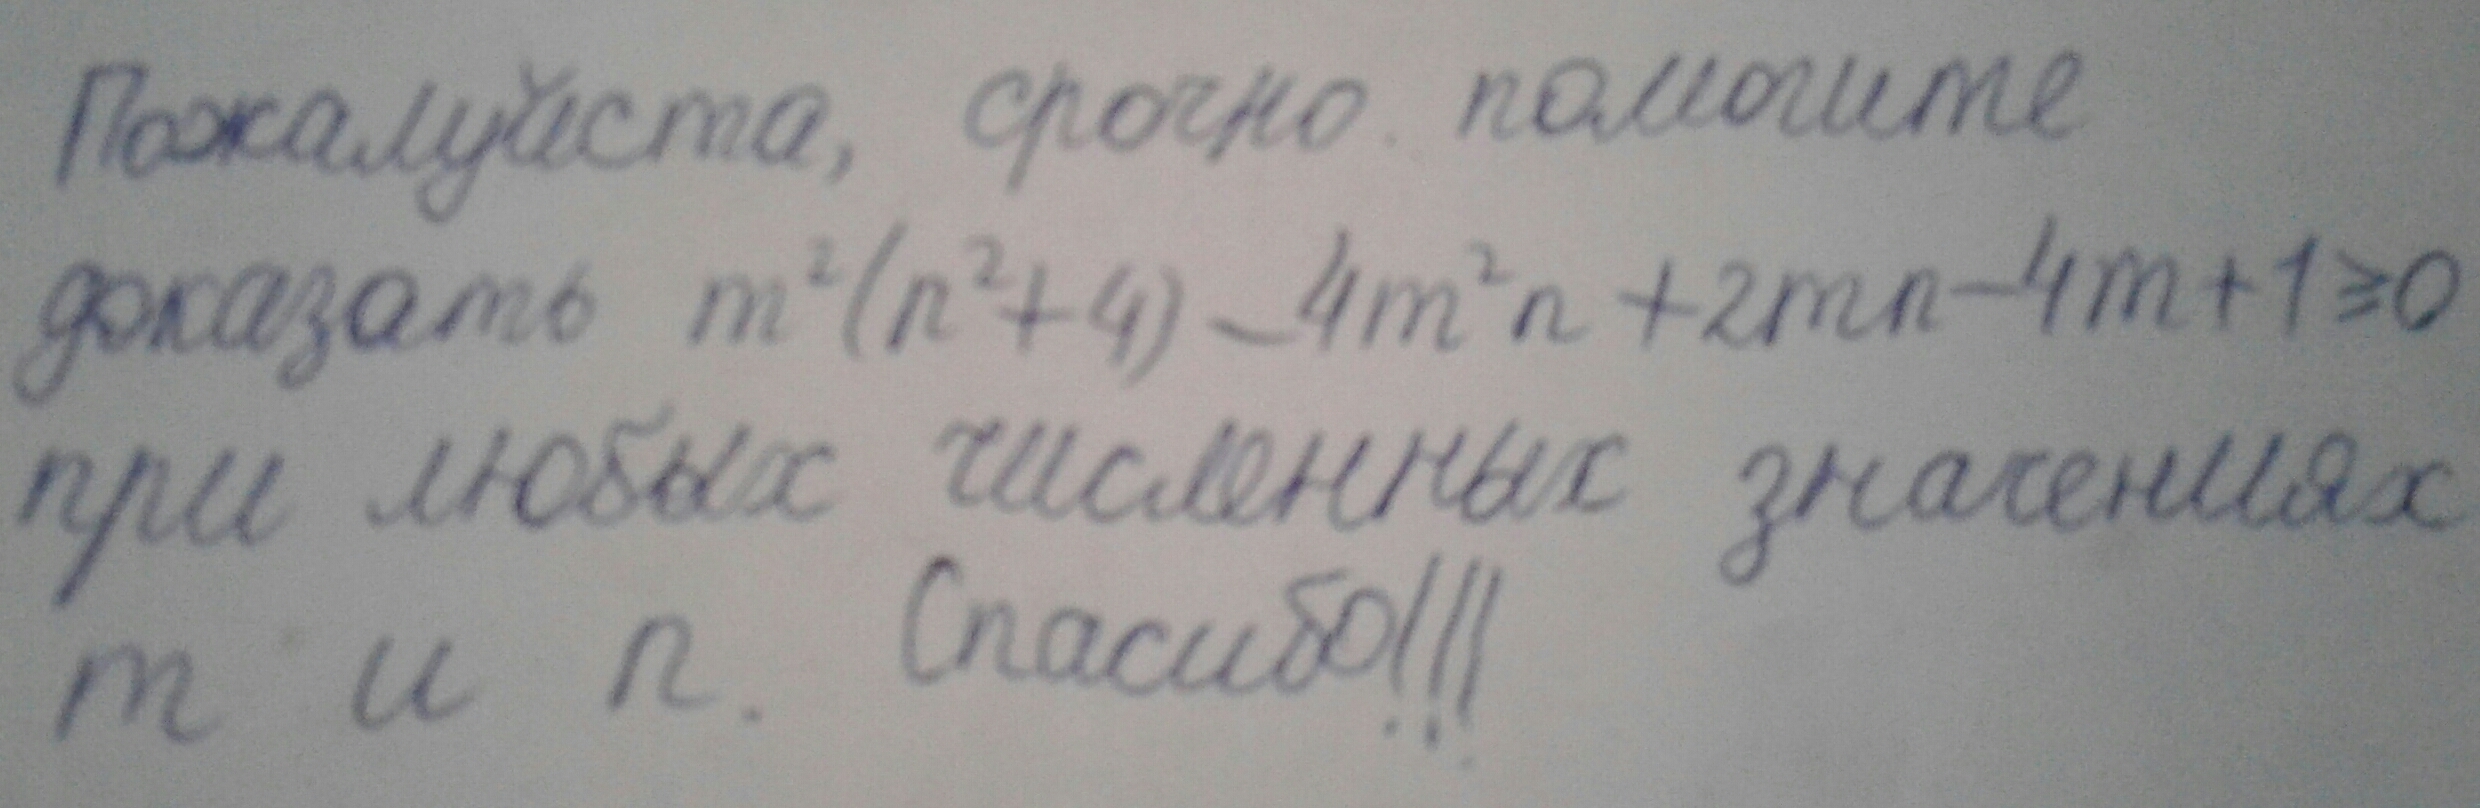 Пожалуйста, срочно помогите
доказать m²(n²+4) - 4m²n + 2mn - 4m + 1 ≥ 0
при любых численных значениях
m и n. Спасибо!!!